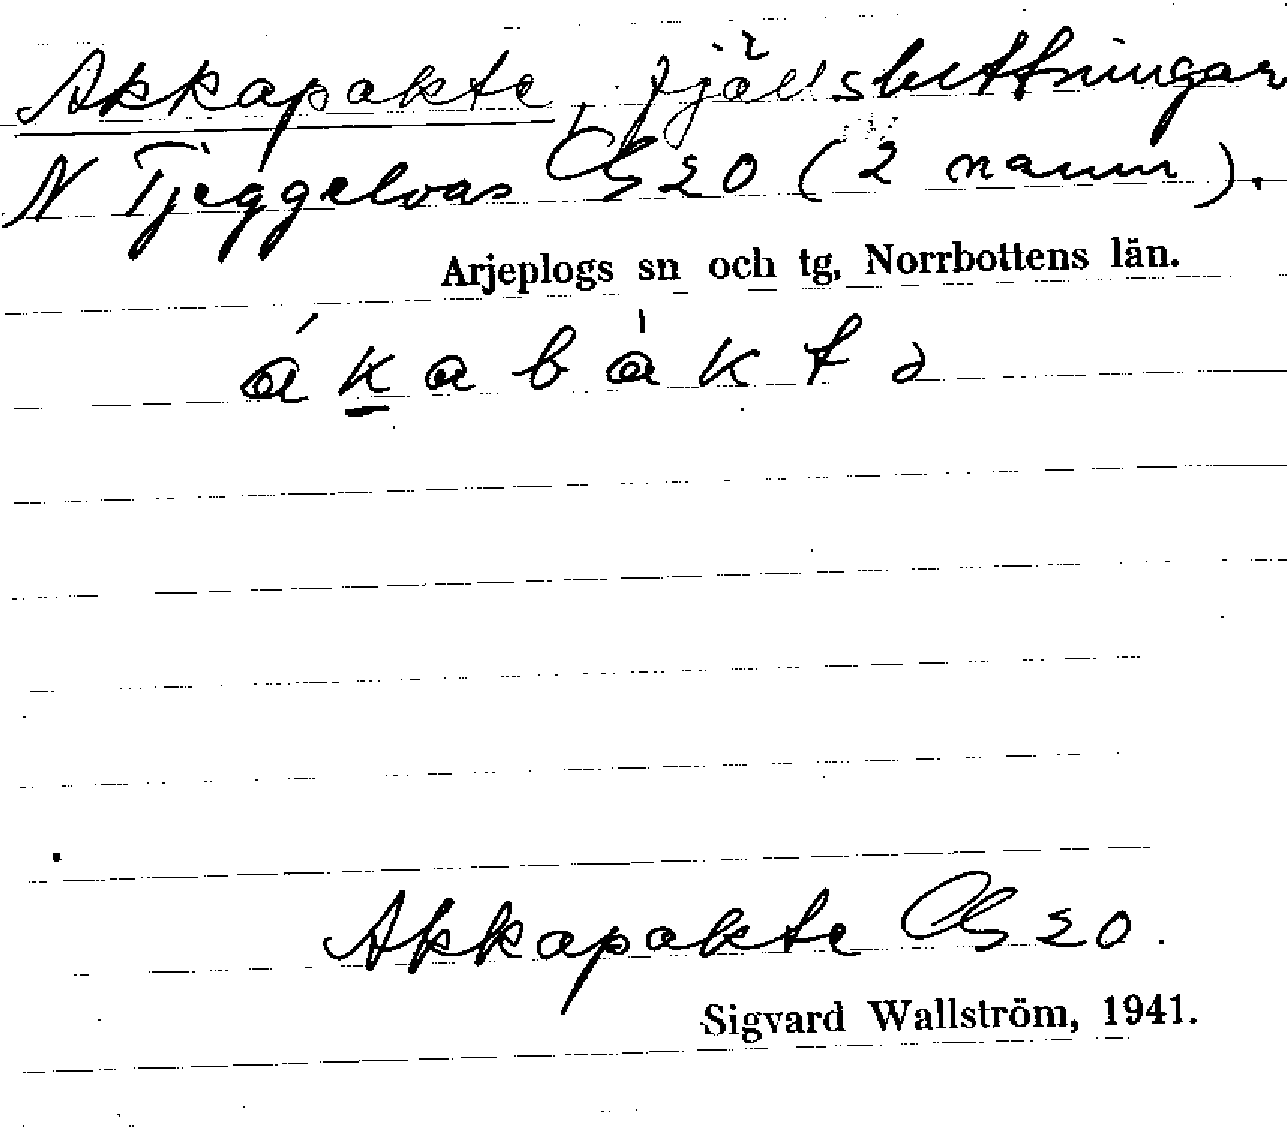 Akkapakte, fjällsluttningar
N Tjeggelvas GS 20 (2 namn).
Arjeplogs sn och tg, Norrbottens län.
á k a b á k t ə
Akkapakte GS 20.
Sigvard Wallström, 1941.